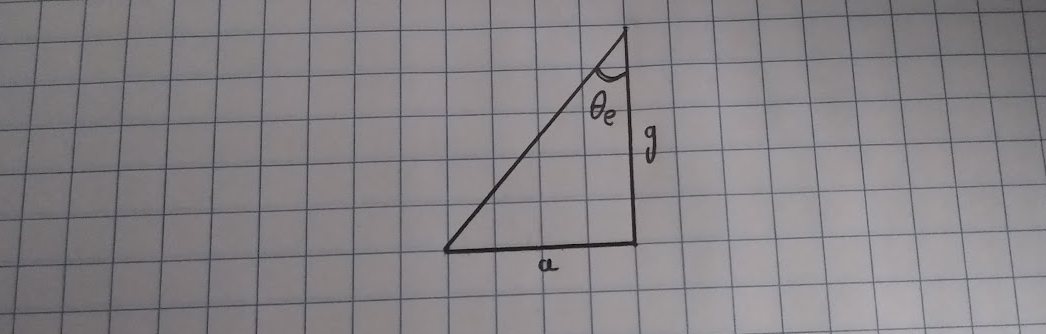 θe
g
a